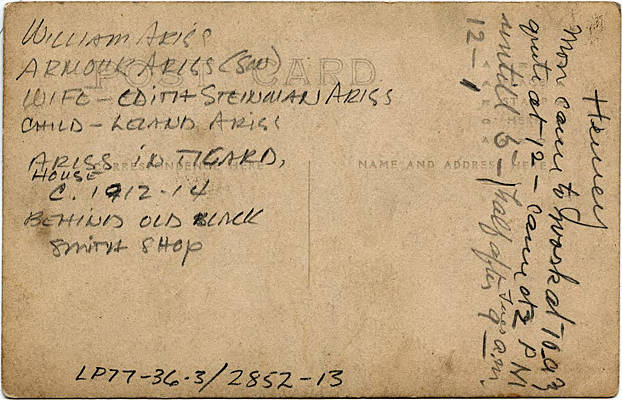 POST CARD
CORRESPONDENCE HERE
NAME AND ADDRESS HERE
WILLIAM ARISS
ARMOUR ARISS (SON)
WIFE - EDITH STEINMAN ARISS
CHILD - LELAND ARISS
ARISS IN TIGARD,
HOUSE
C. 1912-14
BEHIND OLD BLACK
SMITH SHOP
LP77-36-3/2852-13
Henery
Mon came to work at 10 a.m.
quite at 12 - came at 2 PM
untill 6 - half after
12 - 1